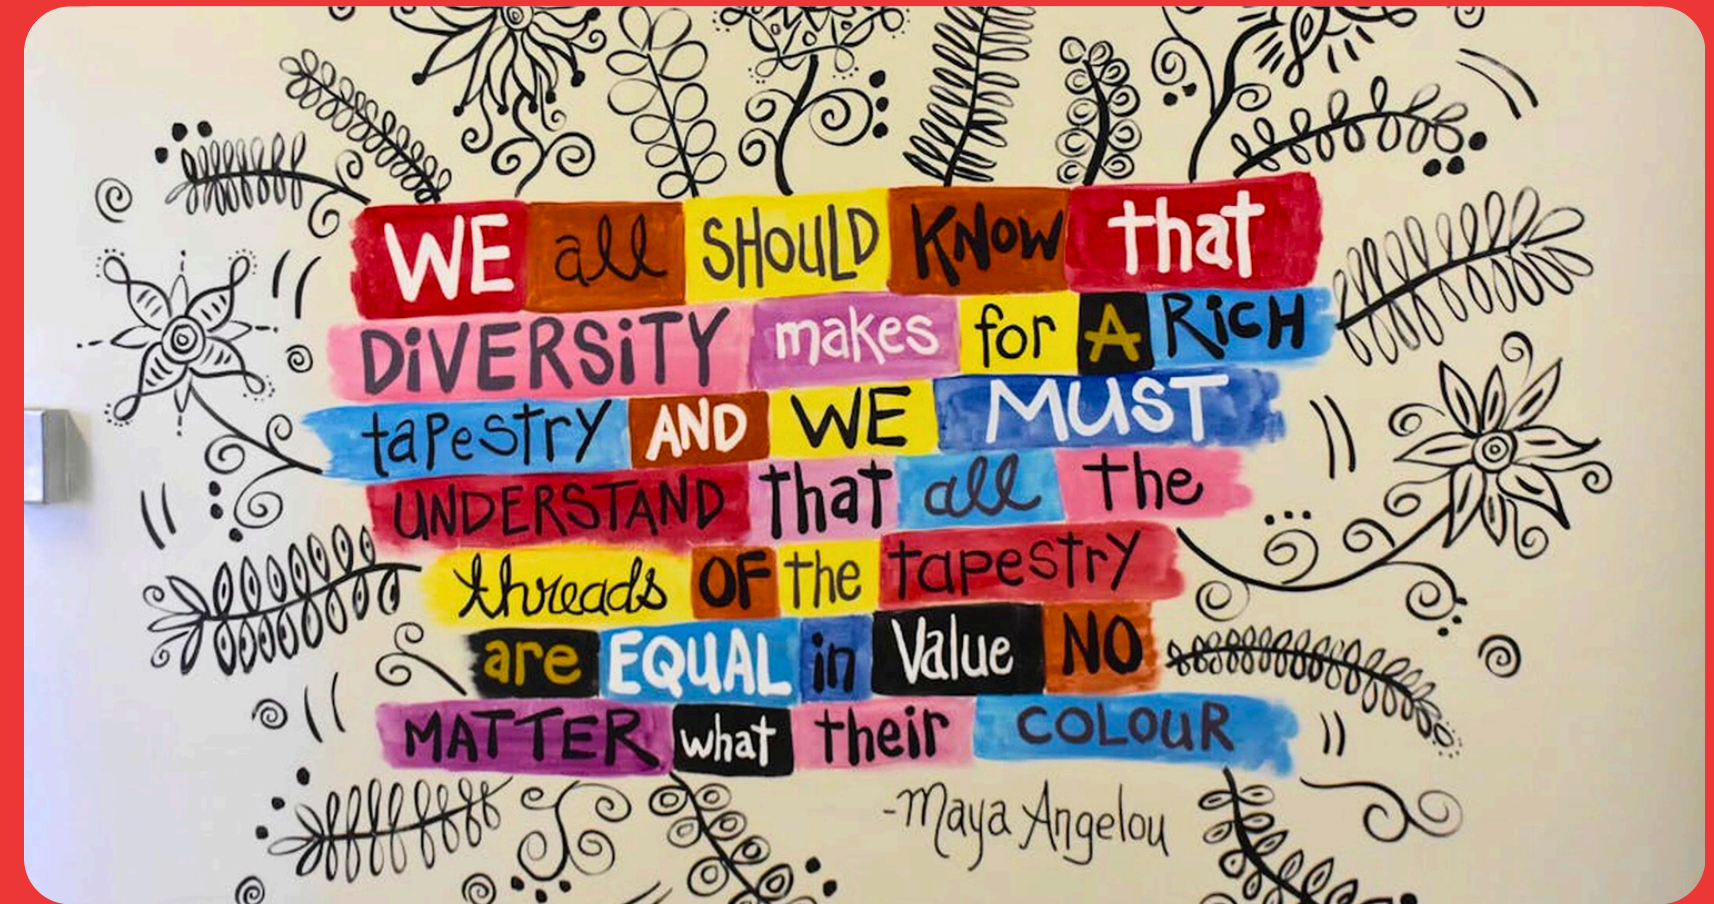 WE all SHOULD KNOW that
DiVERSiTY makes for A RiCH
tapestry AND WE MUST
UNDERSTAND that all the
threads OF the tapestry
are EQUAL in Value NO
MATTER what their COLOUR
-Maya Angelou